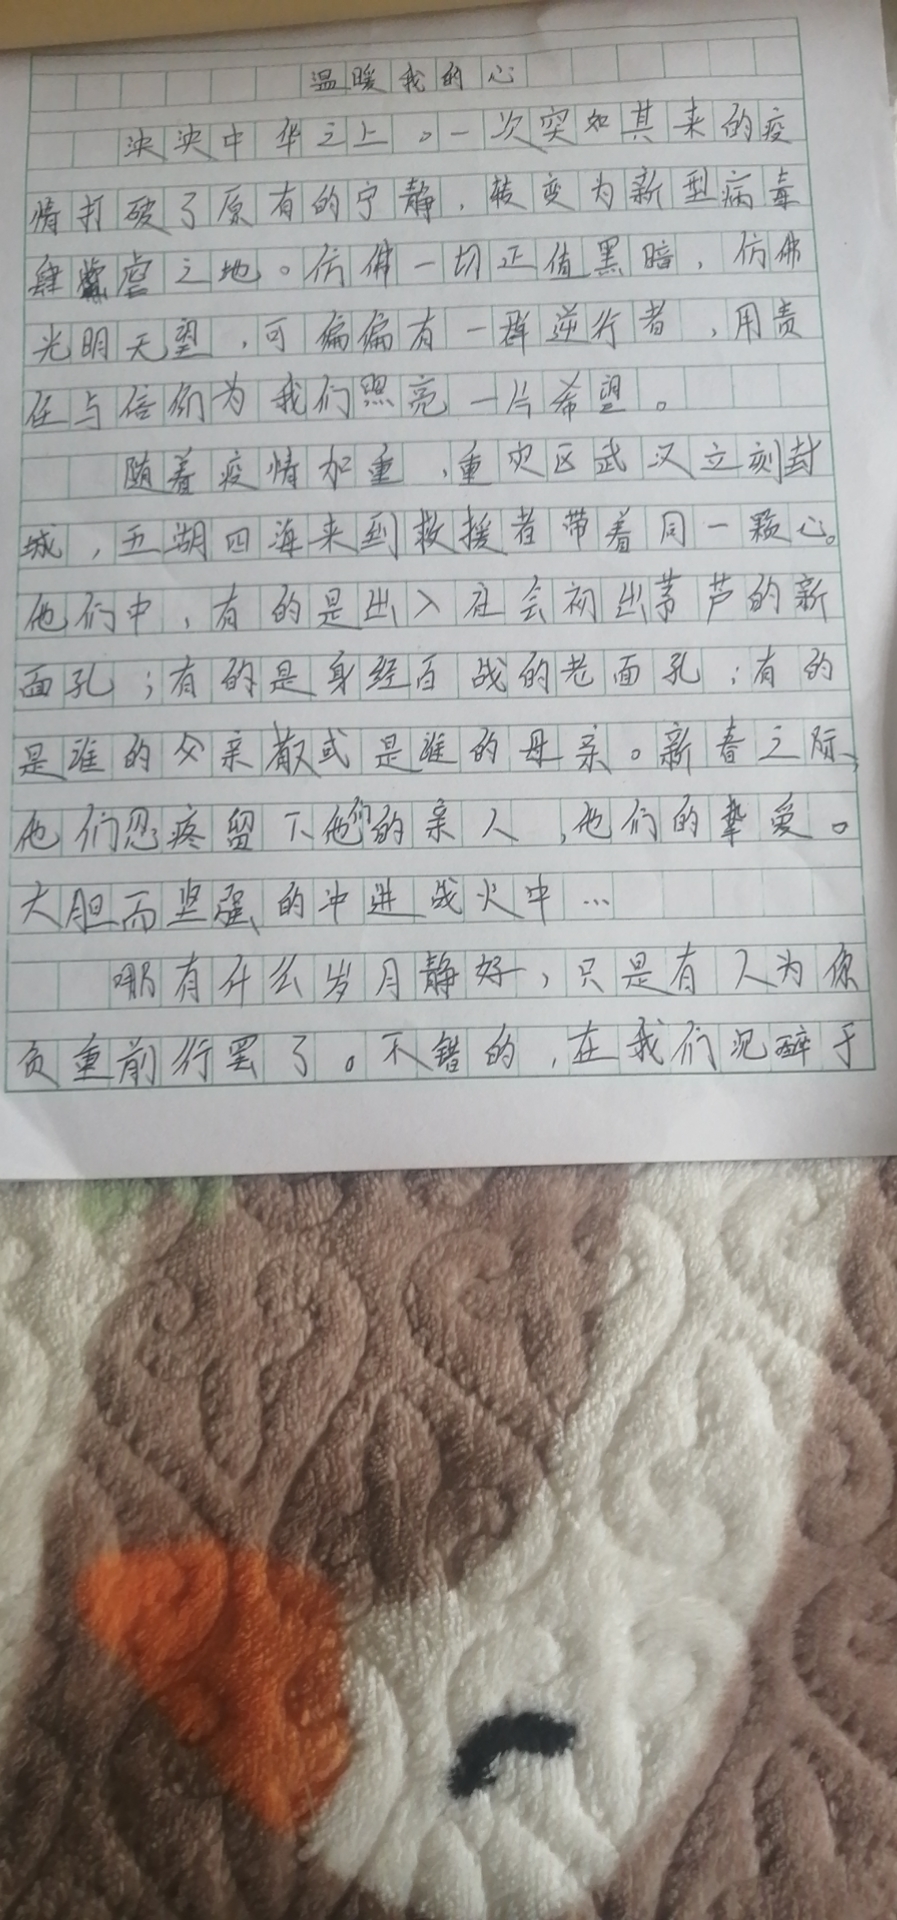 温暖我的心
泱泱中华之上。一次突如其来的疫
情打破了原有的宁静，转变为新型病毒
肆虐之地。仿佛一切正值黑暗，仿佛
光明无望，可偏偏有一群逆行者，用责
任与信仰为我们照亮一片希望。
随着疫情加重，重灾区武汉立刻封
城，五湖四海来到救援者带着同一颗心。
他们中，有的是出入社会初出茅芦的新
面孔；有的是身经百战的老面孔；有的
是谁的父亲散或是谁的母亲。新春之际，
他们忍疼留下他们的亲人，他们的挚爱。
大胆而坚强的冲进战火中…
哪有什么岁月静好，只是有人为你
负重前行罢了。不错的，在我们沉醉于